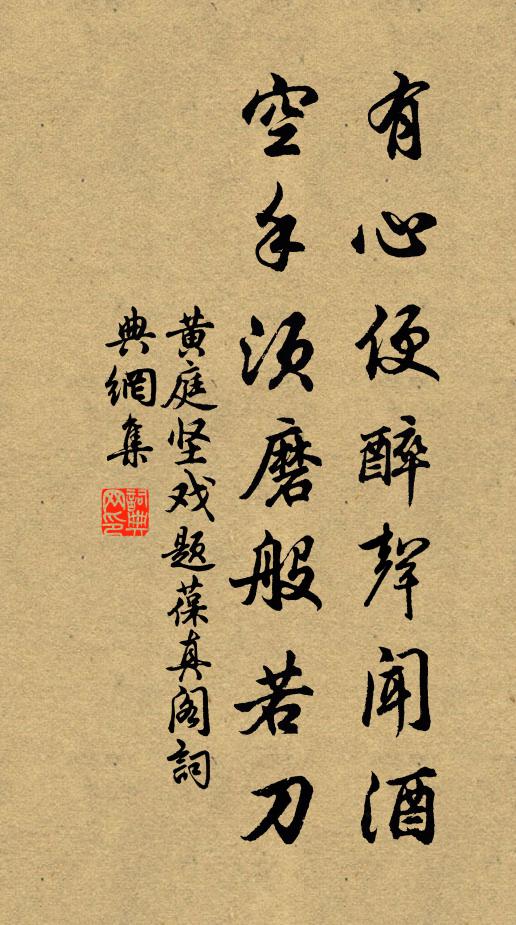 有心便醉聲聞酒
空手須磨般若刀
黄庭坚戏题葆真阁詞
典網集
詞典網印